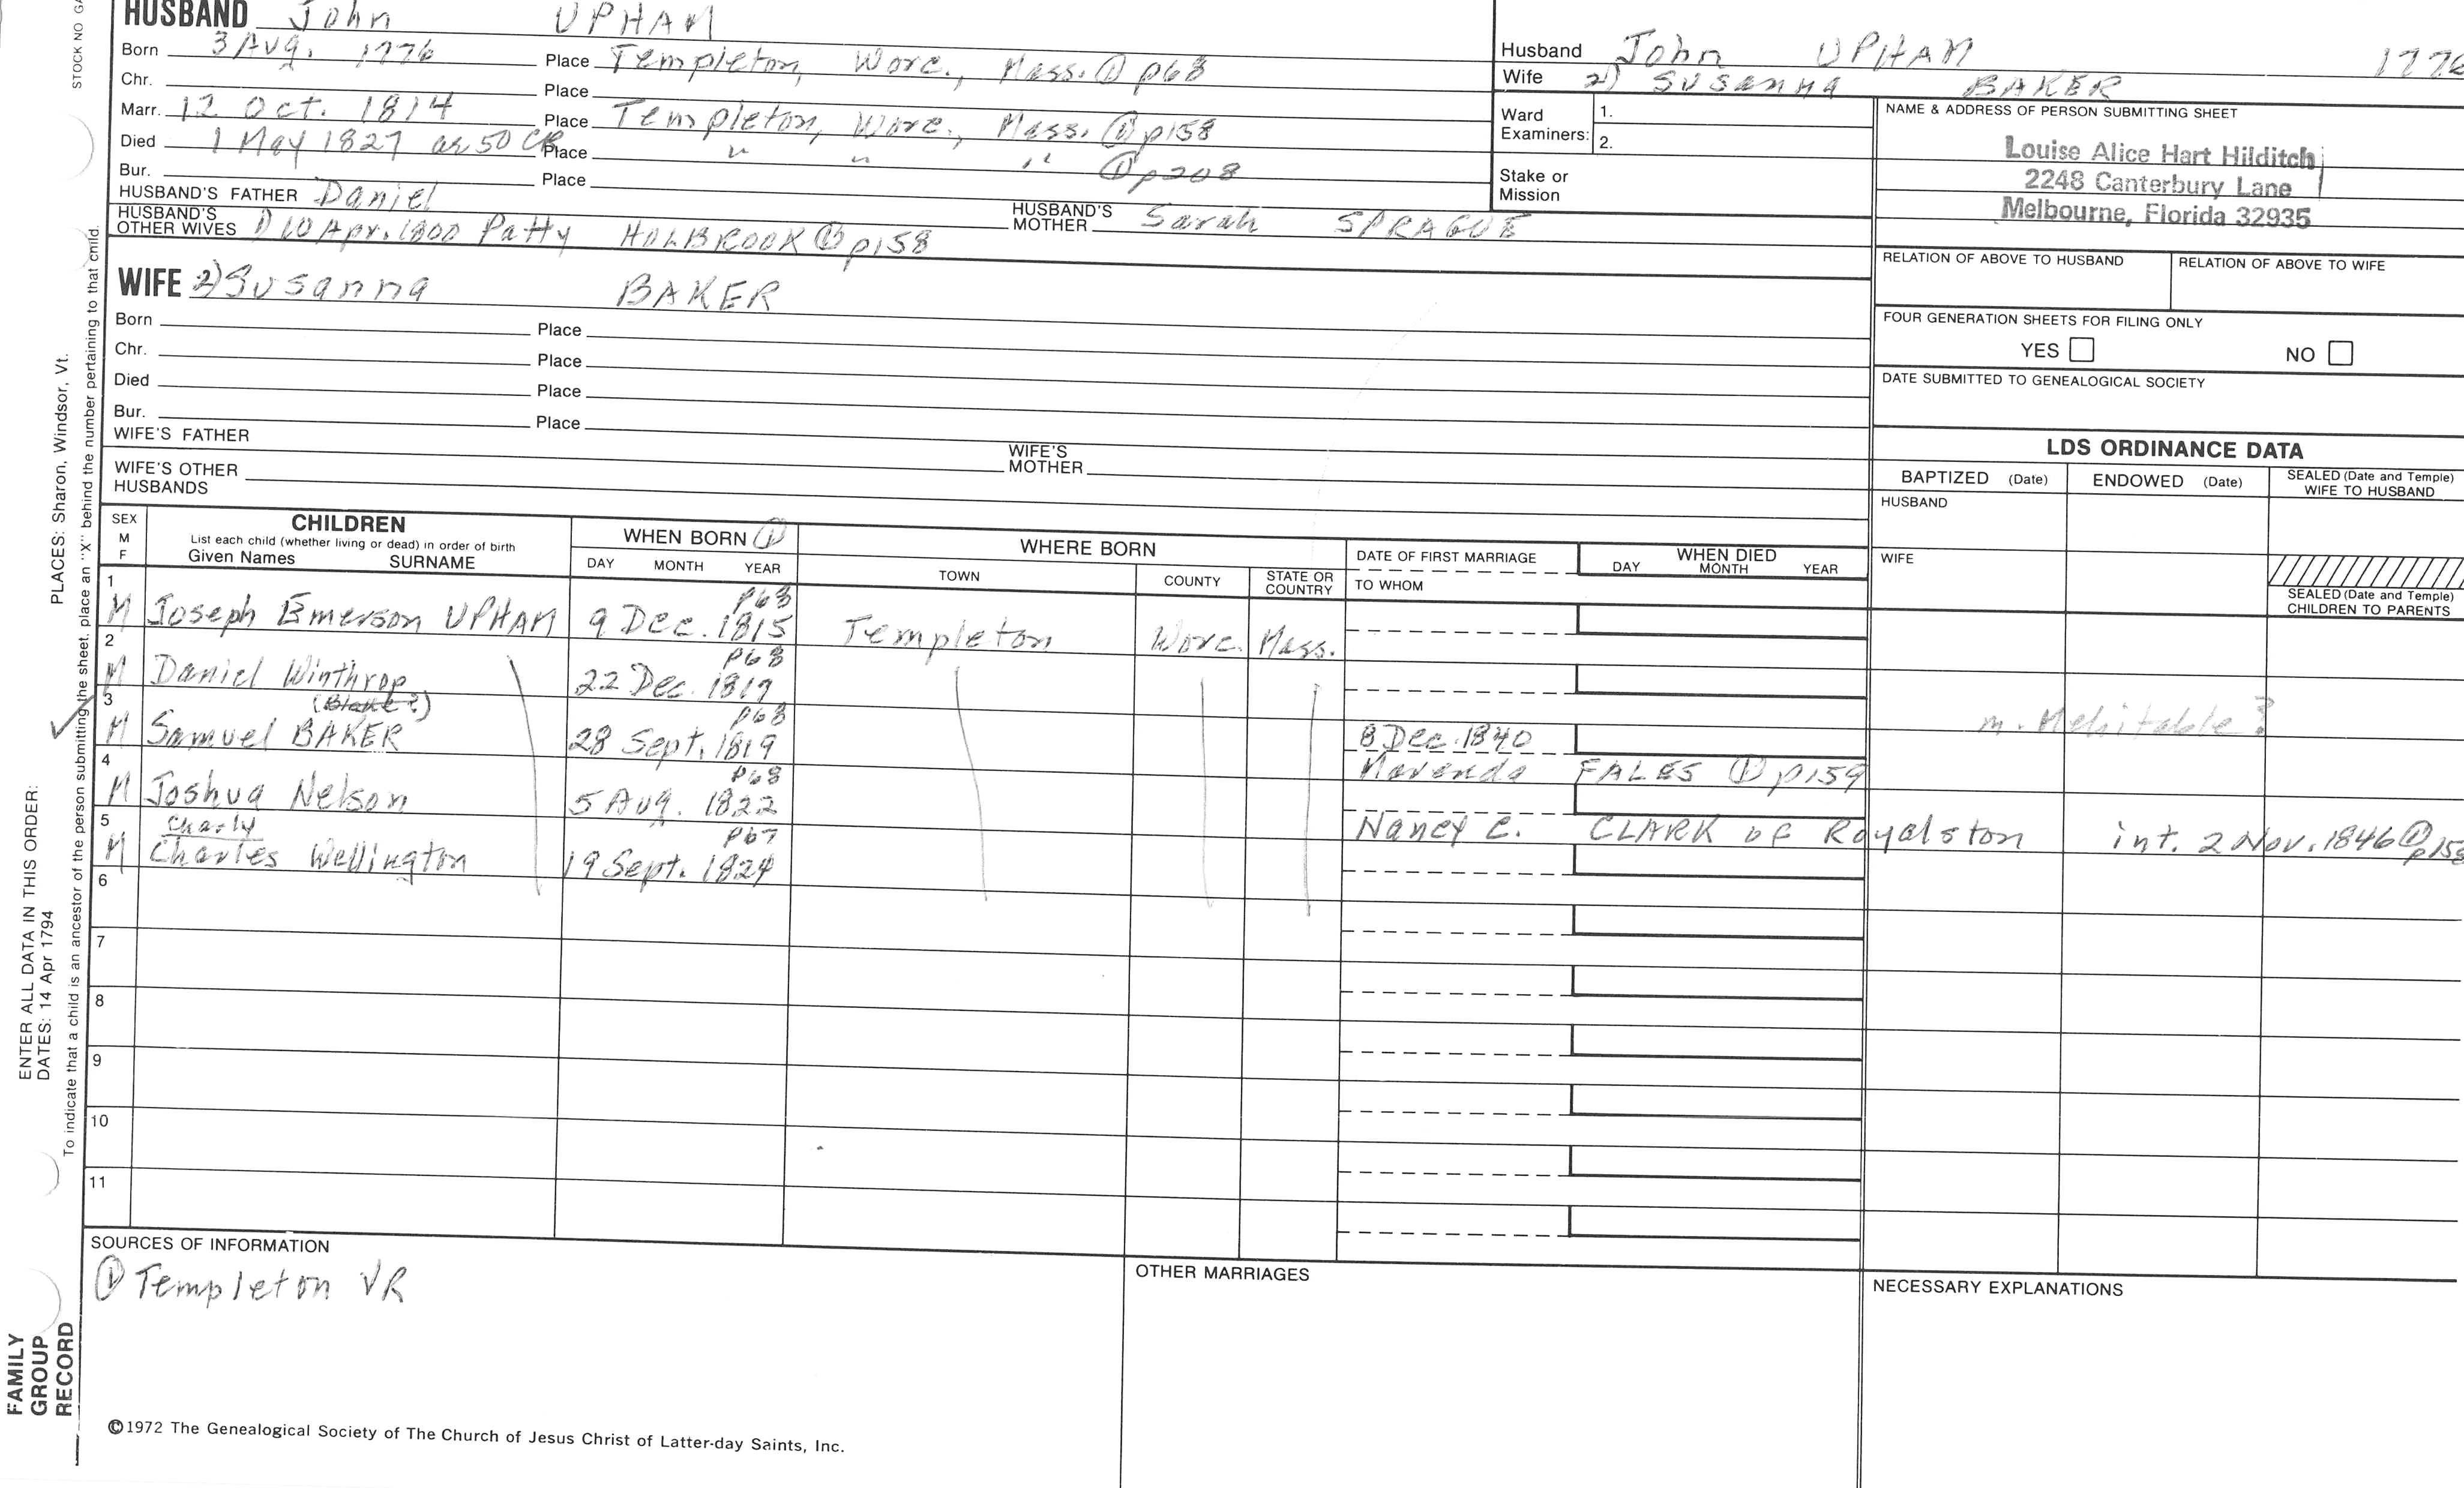 HUSBAND John UPHAM
Born 3 Aug. 1776 Place Templeton, Worc., Mass. ① p68
Chr. Place
Marr. 12 Oct. 1814 Place Templeton, Worc., Mass. ① p158
Died 1 May 1827 ae 50 CR Place " " " ① p208
Bur. Place
HUSBAND'S FATHER Daniel HUSBAND'S MOTHER Sarah SPRAGUE
HUSBAND'S OTHER WIVES 1) 10 Apr. 1800 Patty HOLBROOK ① p158
WIFE 2) Susanna BAKER
Born Place
Chr. Place
Died Place
Bur. Place
WIFE'S FATHER WIFE'S MOTHER
WIFE'S OTHER HUSBANDS
Husband John UPHAM 1776
Wife 2) Susanna BAKER
Ward Examiners: 1.
2.
Stake or Mission
NAME & ADDRESS OF PERSON SUBMITTING SHEET
Louise Alice Hart Hilditch
2248 Canterbury Lane
Melbourne, Florida 32935
RELATION OF ABOVE TO HUSBAND RELATION OF ABOVE TO WIFE
FOUR GENERATION SHEETS FOR FILING ONLY
YES NO
DATE SUBMITTED TO GENEALOGICAL SOCIETY
LDS ORDINANCE DATA
BAPTIZED (Date) ENDOWED (Date) SEALED (Date and Temple) WIFE TO HUSBAND
HUSBAND
WIFE
SEALED (Date and Temple) CHILDREN TO PARENTS
SEX M F
CHILDREN
List each child (whether living or dead) in order of birth
Given Names SURNAME
WHEN BORN ①
DAY MONTH YEAR
WHERE BORN
TOWN COUNTY STATE OR COUNTRY
DATE OF FIRST MARRIAGE
TO WHOM
WHEN DIED
DAY MONTH YEAR
1 p68
M Joseph Emerson UPHAM 9 Dec. 1815 Templeton Worc. Mass.
2 p68
M Daniel Winthrop 22 Dec. 1817
3 (Blake?) p68
M Samuel BAKER 28 Sept. 1819 8 Dec. 1840 m. Mehitable?
FALES ① p159
4 p68
M Joshua Nelson 5 Aug. 1822
Nancy C. CLARK of Royalston int. 2 Nov. 1846 ① p158
5 Charly p67
M Charles Wellington 19 Sept. 1824
6
7
8
9
10
11
SOURCES OF INFORMATION
① Templeton VR
OTHER MARRIAGES
NECESSARY EXPLANATIONS
©1972 The Genealogical Society of The Church of Jesus Christ of Latter-day Saints, Inc.
STOCK NO
ENTER ALL DATA IN THIS ORDER:
DATES: 14 Apr 1794
PLACES: Sharon, Windsor, Vt.
To indicate that a child is an ancestor of the person submitting the sheet, place an "X" behind the number pertaining to that child.
FAMILY
GROUP
RECORD